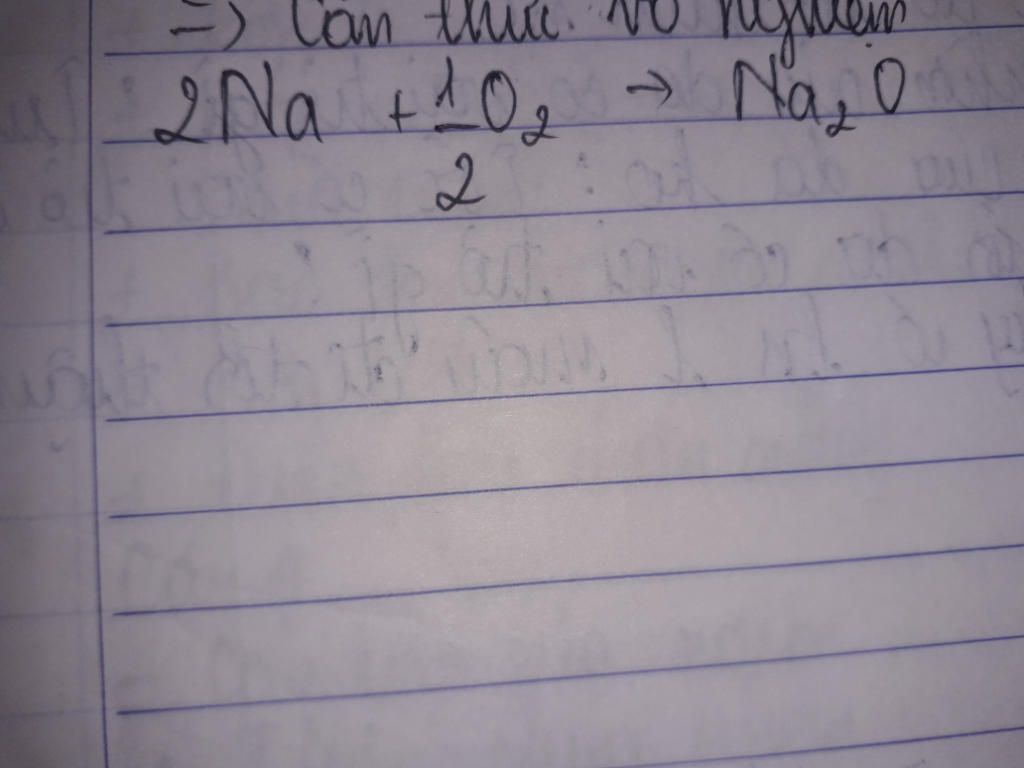 => Căn thức vô nghiệm
2Na + 1/2 O₂ → Na₂O